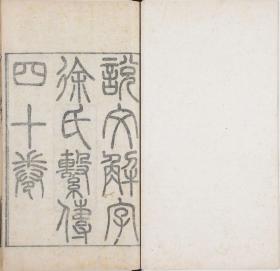 說文解字
徐氏繫傳
四十卷